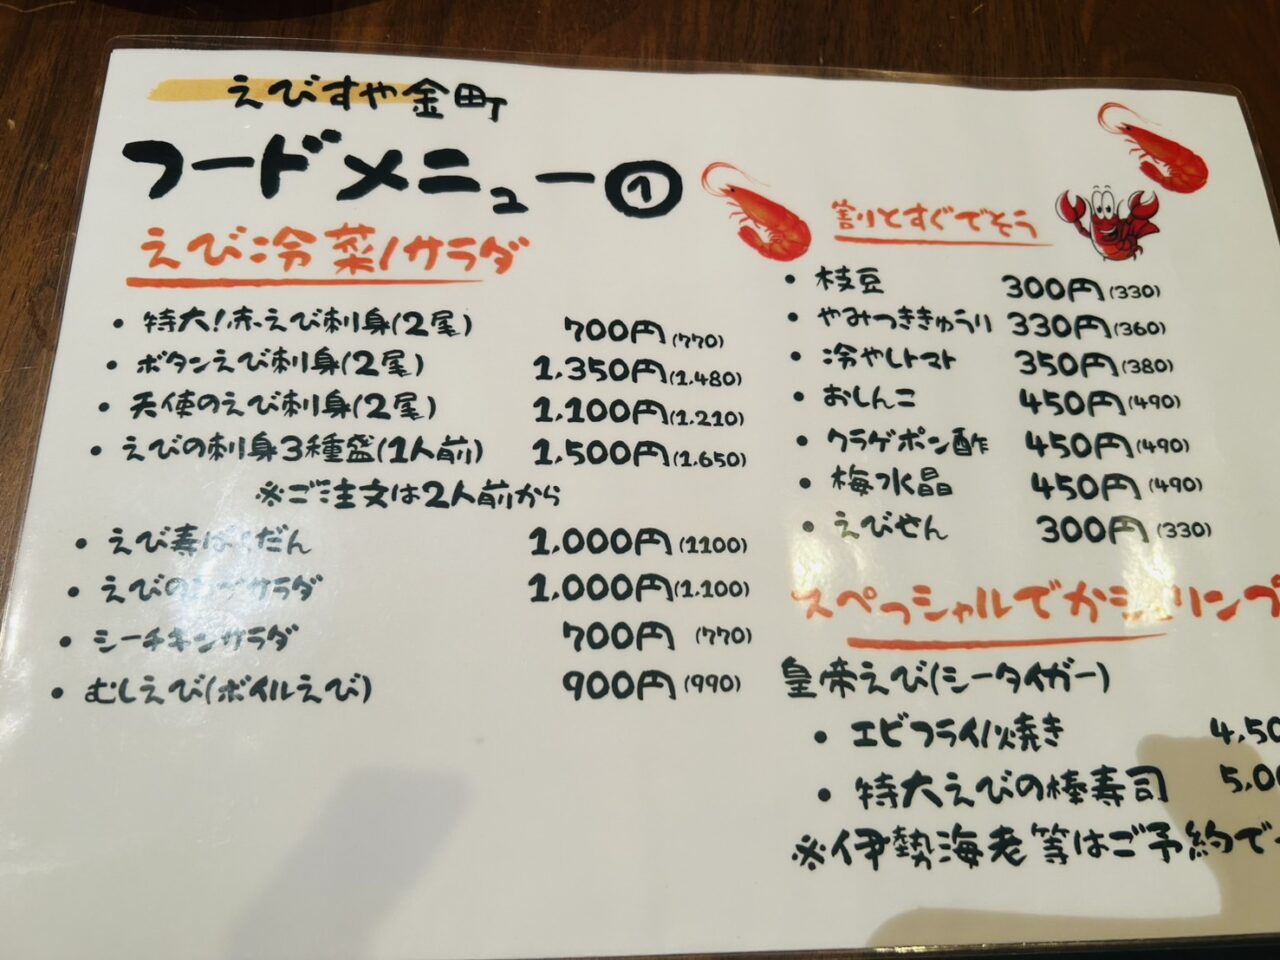 えびすや金町
フードメニュー①
えび冷菜/サラダ
・特大!赤えび刺身(2尾) 700円(770)
・ボタンえび刺身(2尾) 1,350円(1,480)
・天使のえび刺身(2尾) 1,100円(1,210)
・えびの刺身3種盛(1人前) 1,500円(1,650)
※ご注文は2人前から
・えび寿ばくだん 1,000円(1100)
・えびの サラダ 1,000円(1,100)
・シーチキンサラダ 700円(770)
・むしえび(ボイルえび) 900円(990)
割りとすぐでそう
・枝豆 300円(330)
・やみつききゅうり 330円(360)
・冷やしトマト 350円(380)
・おしんこ 450円(490)
・クラゲポン酢 450円(490)
・梅水晶 450円(490)
・えびせん 300円(330)
スペシャルでかシュリンプ
皇帝えび(シータイガー)
・エビフライ/焼き 4,50
・特大えびの棒寿司 5,00
※伊勢海老等はご予約で